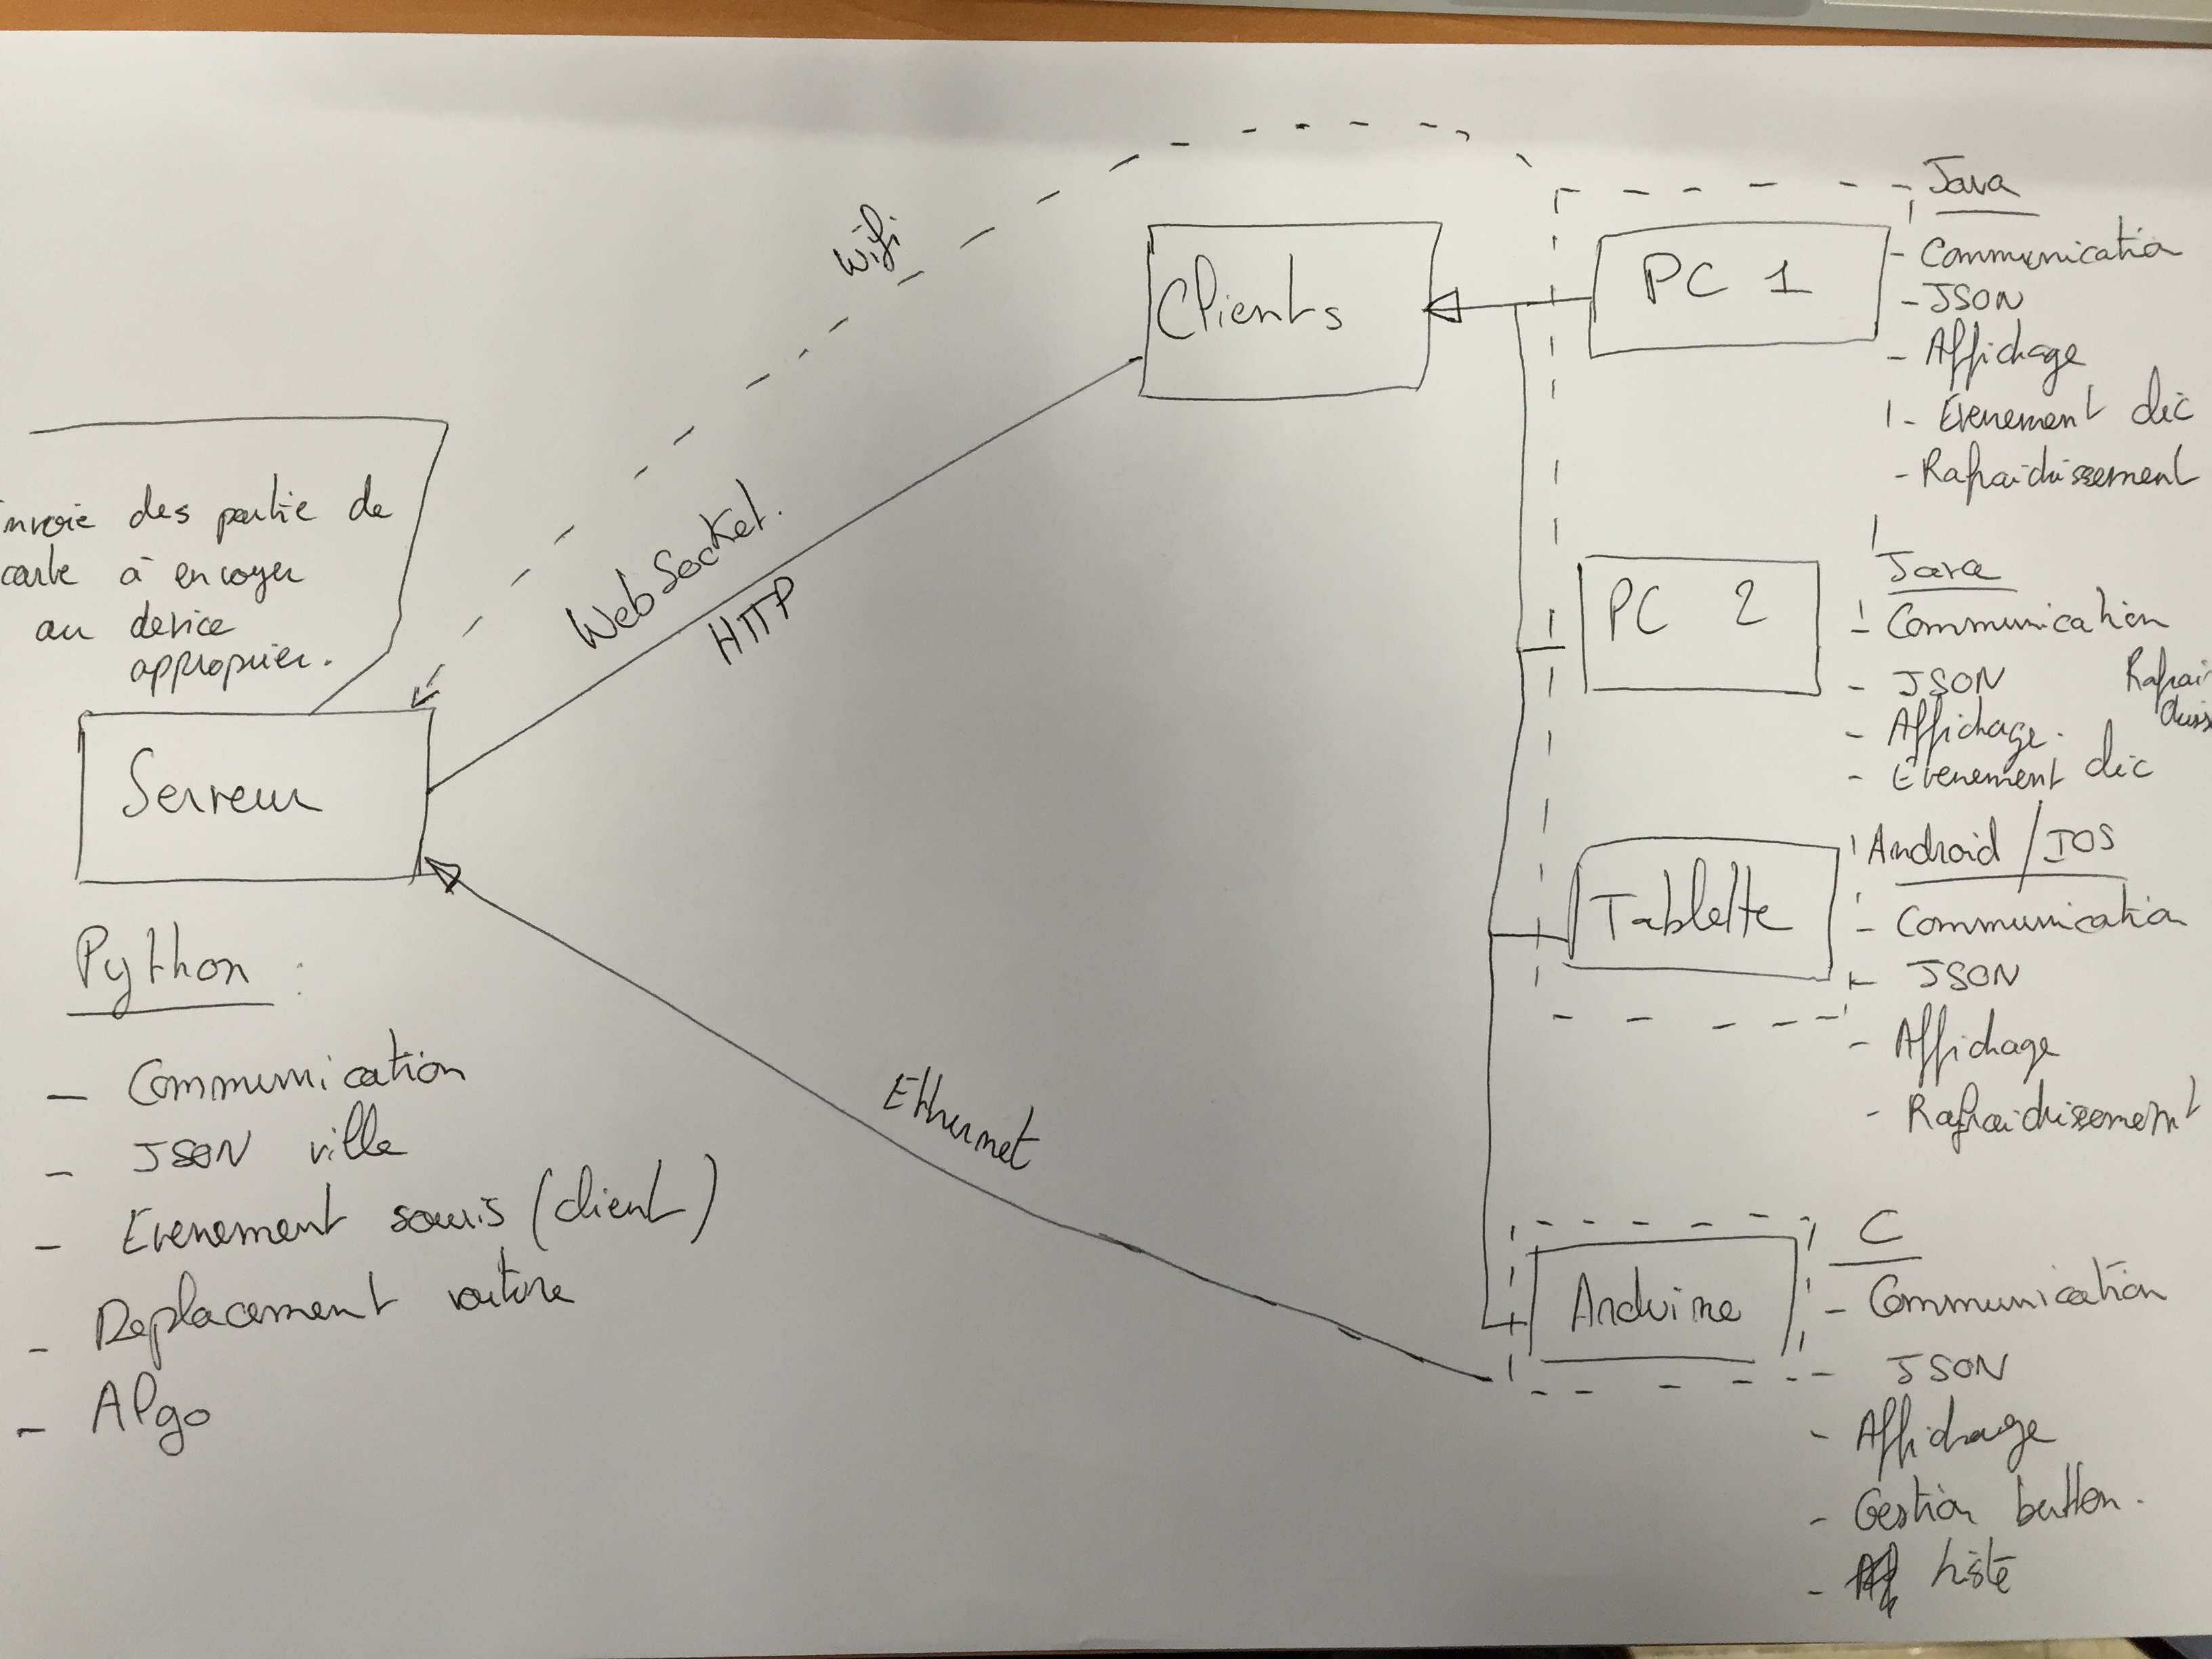 des partie de
carte à envoyer
au device
approprier.
Serveur
Python :
- Communication
- JSON ville
- Evenement souris (client)
- Deplacement voiture
- Algo
WebSocket.
HTTP
Wifi
Ethernet
Clients
PC 1
Java
- Communication
- JSON
- Affichage
- Evenement clic
- Rafraichissement
PC 2
Java
- Communication
- JSON
- Affichage.
- Evenement clic
Tablette
Android / IOS
- Communication
- JSON
- Affichage
- Rafraichissement
Arduino
C
- Communication
- JSON
- Affichage
- Gestion button.
- liste